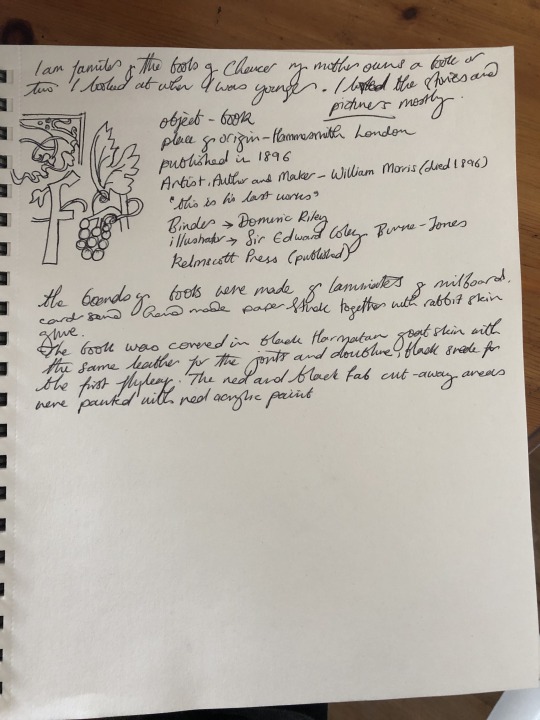 I am familer of the books of Chaucer my mother owns a book or
two I looked at when I was younger. I loved the stories and
pictures mostly.
object - book
place of origin - Hammersmith London
published in 1896
Artist, Author and Maker - William Morris (died 1896)
"this is his last works"
Binder → Dominic Riley
illustrator → Sir Edward Coley Burne-Jones
Kelmscott Press (published)
the boards of books were made of laminates of millboard,
card and hand made paper stuck together with rabbit skin
glue.
The book was covered in black Harmatan goat skin with
the same leather for the joints and doublure, black suede for
the first flyleaf. The red and black fab cut-away areas
were painted with red acrylic paint